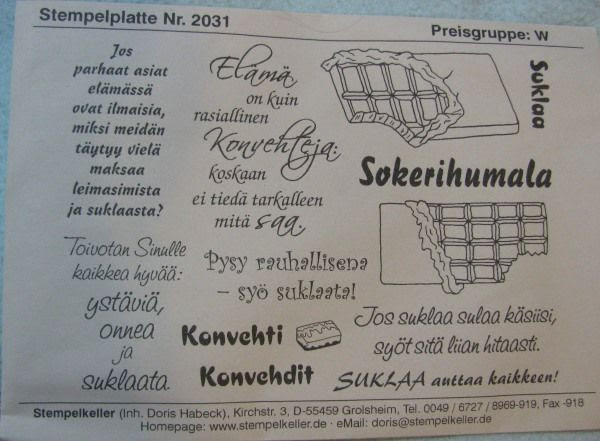 Stempelplatte Nr. 2031
Preisgruppe: W
Jos
parhaat asiat
elämässä
ovat ilmaisia,
miksi meidän
täytyy vielä
maksaa
leimasimista
ja suklaasta?
Elämä
on kuin
rasiallinen
Konvehteja:
koskaan
ei tiedä tarkalleen
mitä saa.
Suklaa
Sokerihumala
Toivotan Sinulle
kaikkea hyvää:
ystäviä,
onnea
ja
suklaata.
Pysy rauhallisena
– syö suklaata!
Konvehti
Konvehdit
Jos suklaa sulaa käsiisi,
syöt sitä liian hitaasti.
SUKLAA auttaa kaikkeen!
Stempelkeller (Inh. Doris Habeck), Kirchstr. 3, D-55459 Grolsheim, Tel. 0049 / 6727 / 8969-919, Fax -918
Homepage: www.stempelkeller.de · eMail: doris@stempelkeller.de